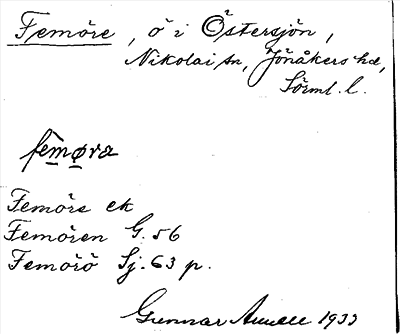 Femöre, ö i Östersjön,
Nikolai sn, Jönåkers hd,
Sörml. l.
femøra
Femöre ek
Femören G. 56
Femörö Sj. 63 p.
Gunnar 1933